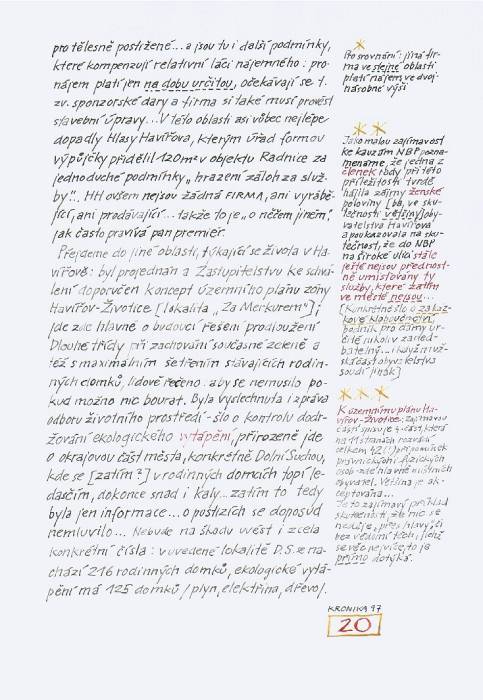 pro tělesně postižené... a jsou tu i další podmínky,
které kompenzují relativní láci nájemného: pro-
nájem platí jen na dobu určitou, očekávají se t.
zv. sponzorské dary a firma si také musí provést
stavební úpravy... V této oblasti asi vůbec nejlépe
dopadly Hlasy Havířova, kterým úřad formou
výpůjčky přidělil 120m² v objektu Radnice za
jednoduché podmínky „hrazení záloh za služ-
by“.. HH ovšem nejsou žádná FIRMA, ani vyrábě-
jící, ani prodávající... takže to je „o něčem jiném“,
jak často pravívá pan premiér.
Přejdeme do jiné oblasti, týkající se života v Ha-
vířově: byl projednán a Zastupitelstvu ke schvá-
lení doporučen koncept územního plánu zóny
Havířov-Životice [lokalita „Za Merkurem“];
jde zde hlavně o budoucí řešení prodloužení
Dlouhé třídy při zachování současné zeleně a
též s maximálním šetřením stávajících rodin-
ných domků, lidově řečeno: aby se nemuselo po-
kud možno nic bourat. Byla vyslechnuta i zpráva
odboru životního prostředí - šlo o kontrolu dodr-
žování ekologického vytápění, přirozeně jde
o okrajovou část města, konkrétně Dolní Suchou,
kde se [zatím?] v rodinných domcích topí le-
dasčím, dokonce snad i kaly.. zatím to tedy
byla jen informace... o postizích se doposud
nemluvilo... Nebude na škodu uvést i zcela
konkrétní čísla: v uvedené lokalitě D.S. se na-
chází 216 rodinných domků, ekologické vytá-
pění má 125 domků /plyn, elektřina, dřevo/.
Pro srovnání: jiná fir-
ma ve stejné oblasti
platí nájem ve dvoj-
národné výši
Jako malou zajímavost
ke kauzám NBP pozna-
menáme, že jedna z
členek rady při této
příležitosti tvrdě
hájila zájmy ženské
poloviny [ba, ve sku-
tečnosti většiny] oby-
vatelstva Havířova
a poukazovala na sku-
tečnost, že do NBP
na široké ulici stále
ještě nejsou přednost-
ně umísťovány ty
služby, které zatím
ve městě nejsou...
[Konkrétně šlo o zakáz-
kové kloboučnictví
podnik pro dámy ur-
čitě nikoliv zaned-
batelný... i když muž-
ská část obyvatelstva
soudí jinak]
K územnímu plánu Ha-
vířov-Životice: zajímavou
částí spisu je ta část, která
na 11 stranách rozvádí
celkem 42 (!) připomínek
právnických i fyzických
osob - zde hlavně místních
obyvatel. Většina je ak-
ceptována...
Je to zajímavý příklad
skutečnosti, že nic se
neděje „přes hlavy“, či
bez vědomí těch, jichž
se věc nejvíce to je
přímo dotýká.
KRONIKA 97
20